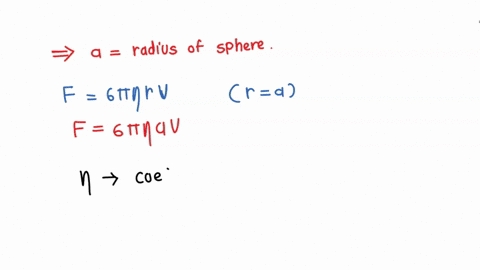 ⇒ a = radius of sphere.
F = 6πηrV (r = a)
F = 6πηaV
η → coe